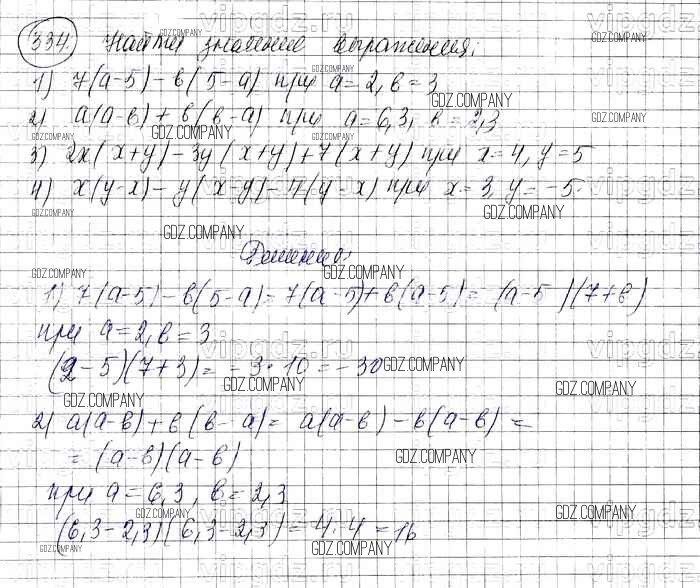 334. Найти значение выражения:
1) 7(a-5)-в(5-a) при a=2, в=3
2) a(a-в)+в(в-a) при a=6,3, в=2,3
3) 2x(x+y)-3y(x+y)+7(x+y) при x=4, y=5
4) x(y-x)-y(x-y)-7(y-x) при x=3, y=-5.
Решение:
1) 7(a-5)-в(5-a)=7(a-5)+в(a-5)=(a-5)(7+в)
при a=2, в=3
(2-5)(7+3)=-3·10=-30
2) a(a-в)+в(в-a)=a(a-в)-в(a-в)=
=(a-в)(a-в)
при a=6,3, в=2,3
(6,3-2,3)(6,3-2,3)=4·4=16
GDZ.COMPANY
vipgdz.ru